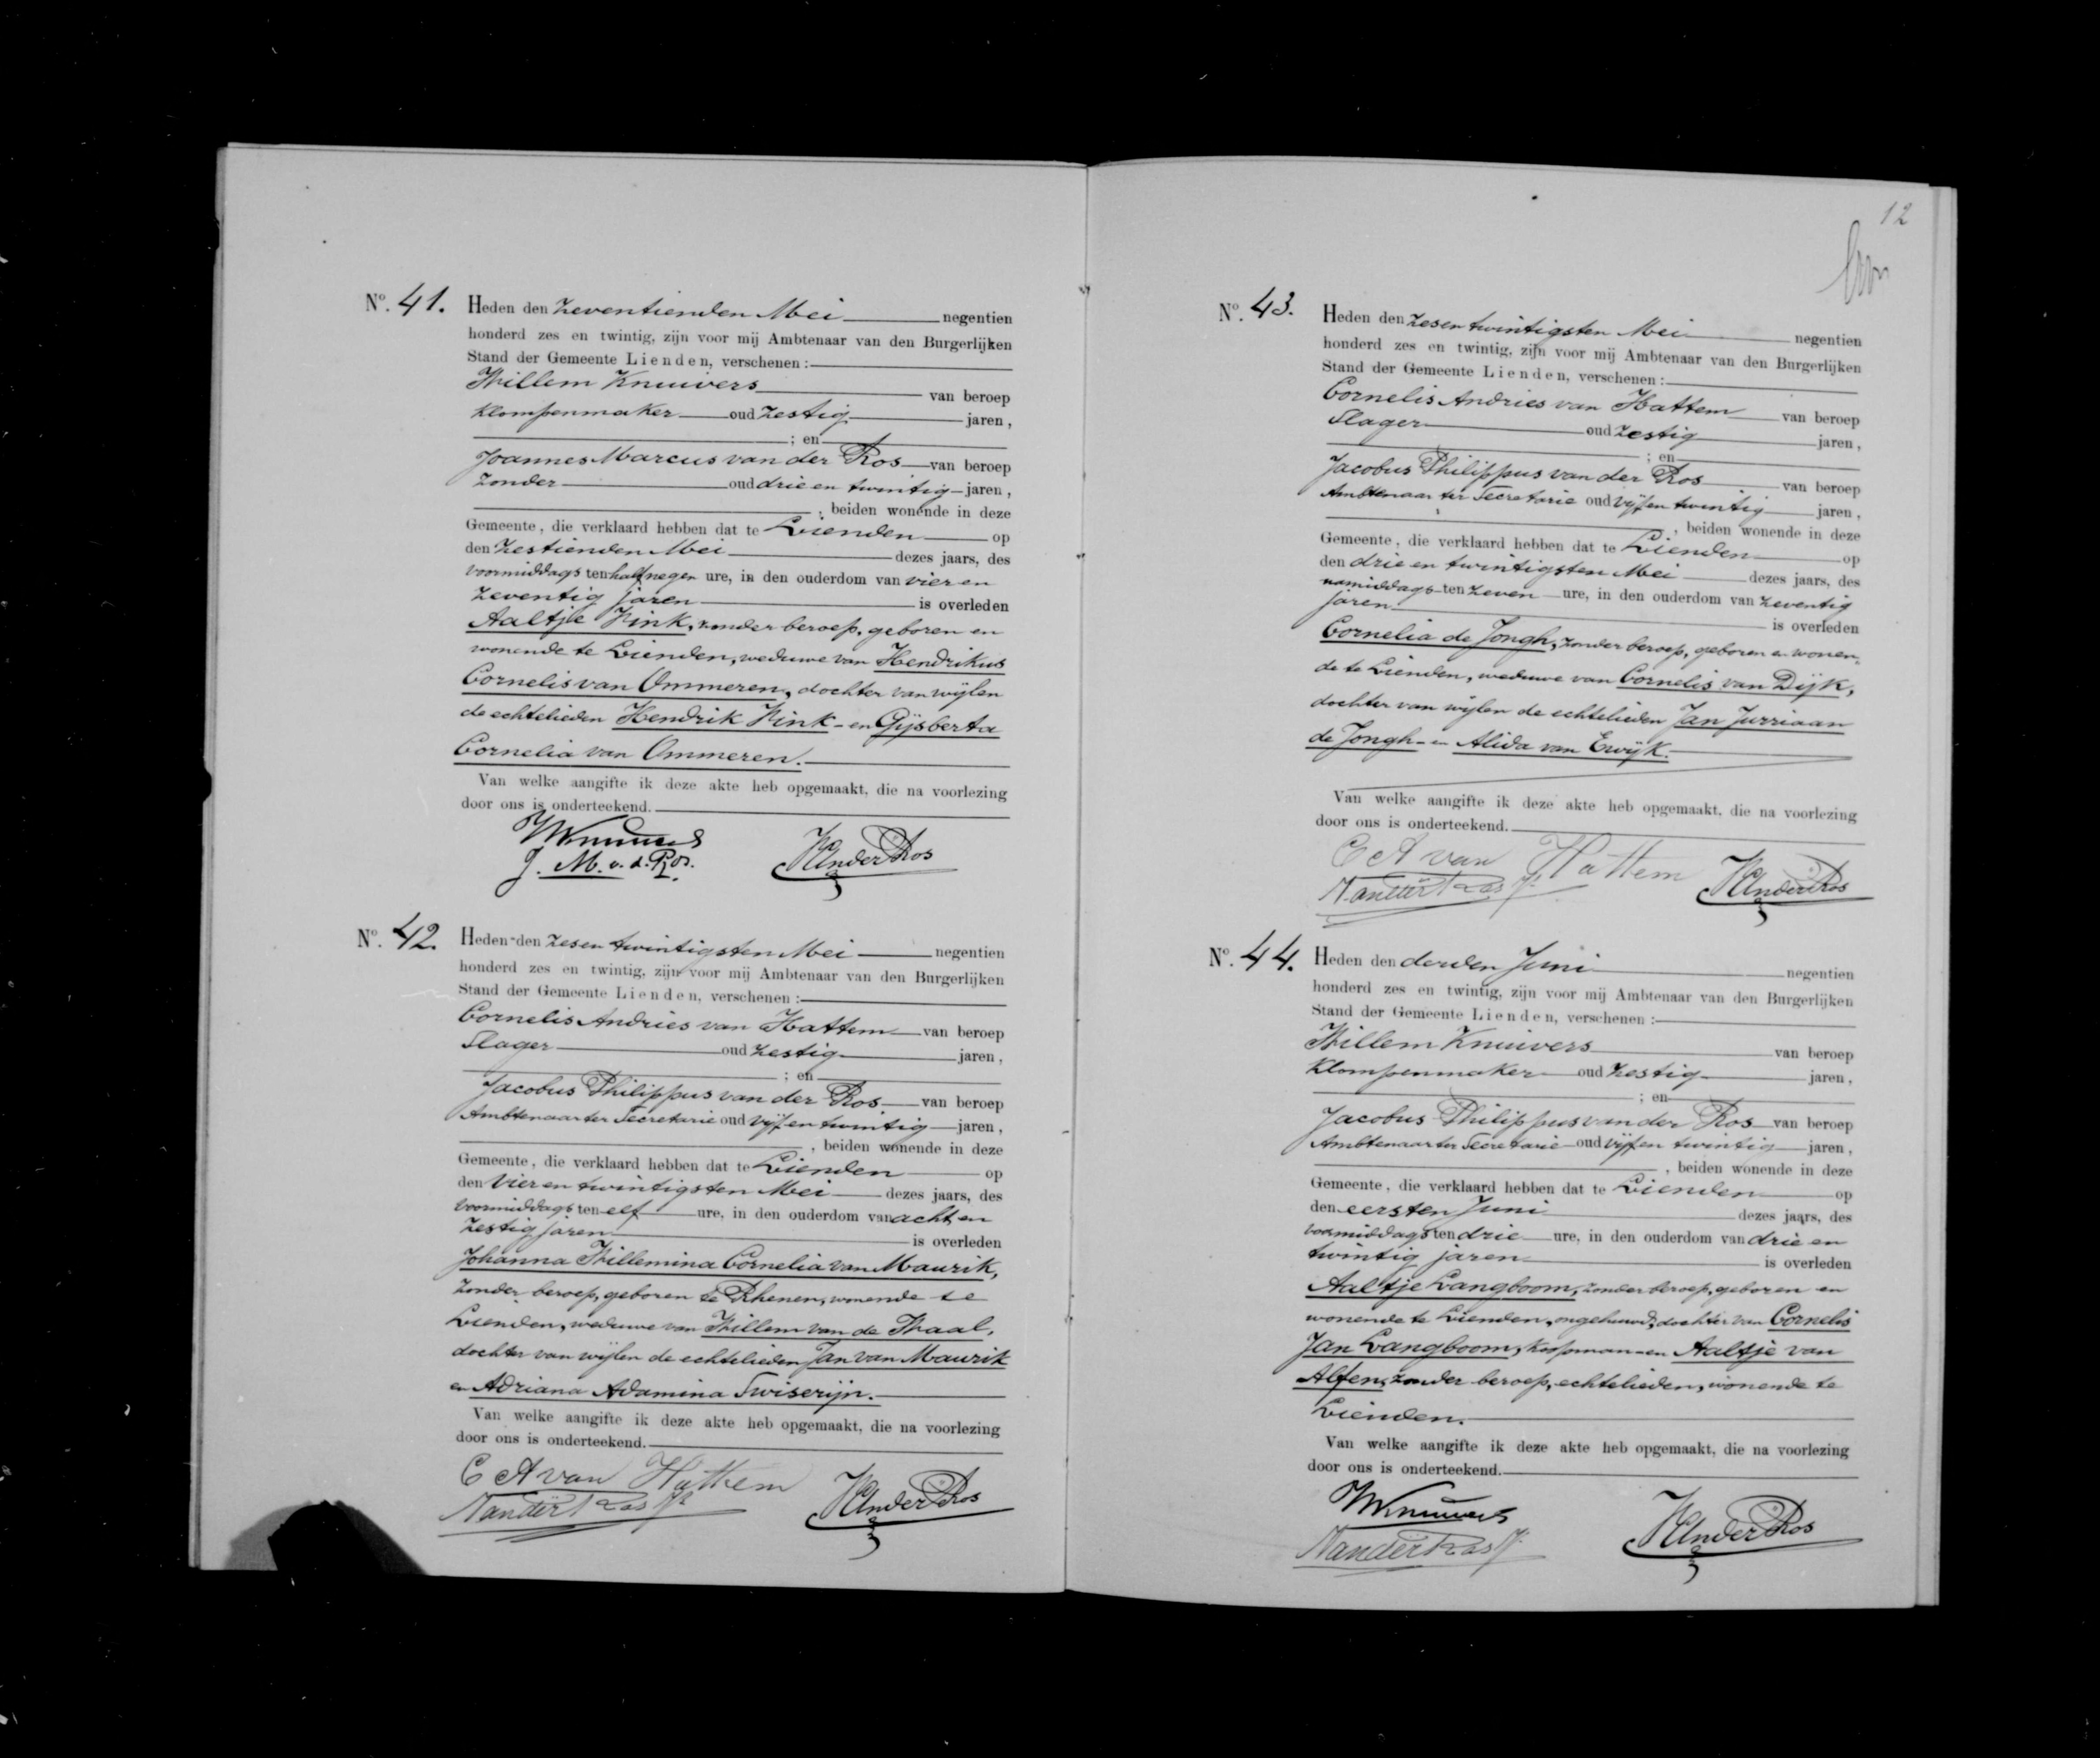 No. 41. Heden den zeventienden Mei negentien
honderd zes en twintig, zijn voor mij Ambtenaar van den Burgerlijken
Stand der Gemeente Lienden, verschenen:
Willem Knuivers van beroep
klompenmaker oud zestig jaren,
; en
Joannes Marcus van der Ros van beroep
zonder oud drie en twintig jaren,
, beiden wonende in deze
Gemeente, die verklaard hebben dat te Lienden op
den zestienden Mei dezes jaars, des
voormiddags ten half negen ure, in den ouderdom van vier en
zeventig jaren is overleden
Aaltje Kink, zonder beroep, geboren en
wonende te Lienden, weduwe van Hendrikus
Cornelis van Ommeren, dochter van wijlen
de echtelieden Hendrik Kink - en Gijsberta
Cornelia van Ommeren.
Van welke aangifte ik deze akte heb opgemaakt, die na voorlezing
door ons is onderteekend.
WKnuivers
J. M. v. d. Ros.
VanderRos
No. 42. Heden den zesentwintigsten Mei negentien
honderd zes en twintig, zijn voor mij Ambtenaar van den Burgerlijken
Stand der Gemeente Lienden, verschenen:
Cornelis Andries van Hattem van beroep
Slager oud zestig jaren,
; en
Jacobus Philippus van der Ros van beroep
Ambtenaar ter Secretarie oud vijf en twintig jaren,
, beiden wonende in deze
Gemeente, die verklaard hebben dat te Lienden op
den vier en twintigsten Mei dezes jaars, des
voormiddags ten elf ure, in den ouderdom van acht en
zestig jaren is overleden
Johanna Willemina Cornelia van Maurik,
zonder beroep, geboren te Rhenen, wonende te
Lienden, weduwe van Willem van de Waal,
dochter van wijlen de echtelieden Jan van Maurik
en Adriana Adamina Twiserijn.
Van welke aangifte ik deze akte heb opgemaakt, die na voorlezing
door ons is onderteekend.
C A van Hattem
VanderRos Jr
VanderRos
12
No. 43. Heden den zesentwintigsten Mei negentien
honderd zes en twintig, zijn voor mij Ambtenaar van den Burgerlijken
Stand der Gemeente Lienden, verschenen:
Cornelis Andries van Hattem van beroep
Slager oud zestig jaren,
; en
Jacobus Philippus van der Ros van beroep
Ambtenaar ter Secretarie oud vijf en twintig jaren,
, beiden wonende in deze
Gemeente, die verklaard hebben dat te Lienden op
den drie en twintigsten Mei dezes jaars, des
namiddags ten zeven ure, in den ouderdom van zeventig
jaren is overleden
Cornelia de Jongh, zonder beroep, geboren en wonen-
de te Lienden, weduwe van Cornelis van Dijk,
dochter van wijlen de echtelieden Jan Jurriaan
de Jongh - en Alida van Ewijk.
Van welke aangifte ik deze akte heb opgemaakt, die na voorlezing
door ons is onderteekend.
C A van Hattem
VanderRos Jr
VanderRos
No. 44. Heden den derden Juni negentien
honderd zes en twintig, zijn voor mij Ambtenaar van den Burgerlijken
Stand der Gemeente Lienden, verschenen:
Willem Knuivers van beroep
klompenmaker oud zestig jaren,
; en
Jacobus Philippus van der Ros van beroep
Ambtenaar ter Secretarie oud vijf en twintig jaren,
, beiden wonende in deze
Gemeente, die verklaard hebben dat te Lienden op
den eersten Juni dezes jaars, des
voormiddags ten drie ure, in den ouderdom van drie en
twintig jaren is overleden
Aaltje Langboom, zonder beroep, geboren en
wonende te Lienden, ongehuwd, dochter van Cornelis
Jan Langboom, koopman - en Aaltje van
Alfen, zonder beroep, echtelieden, wonende te
Lienden.
Van welke aangifte ik deze akte heb opgemaakt, die na voorlezing
door ons is onderteekend.
WKnuivers
VanderRos Jr
VanderRos